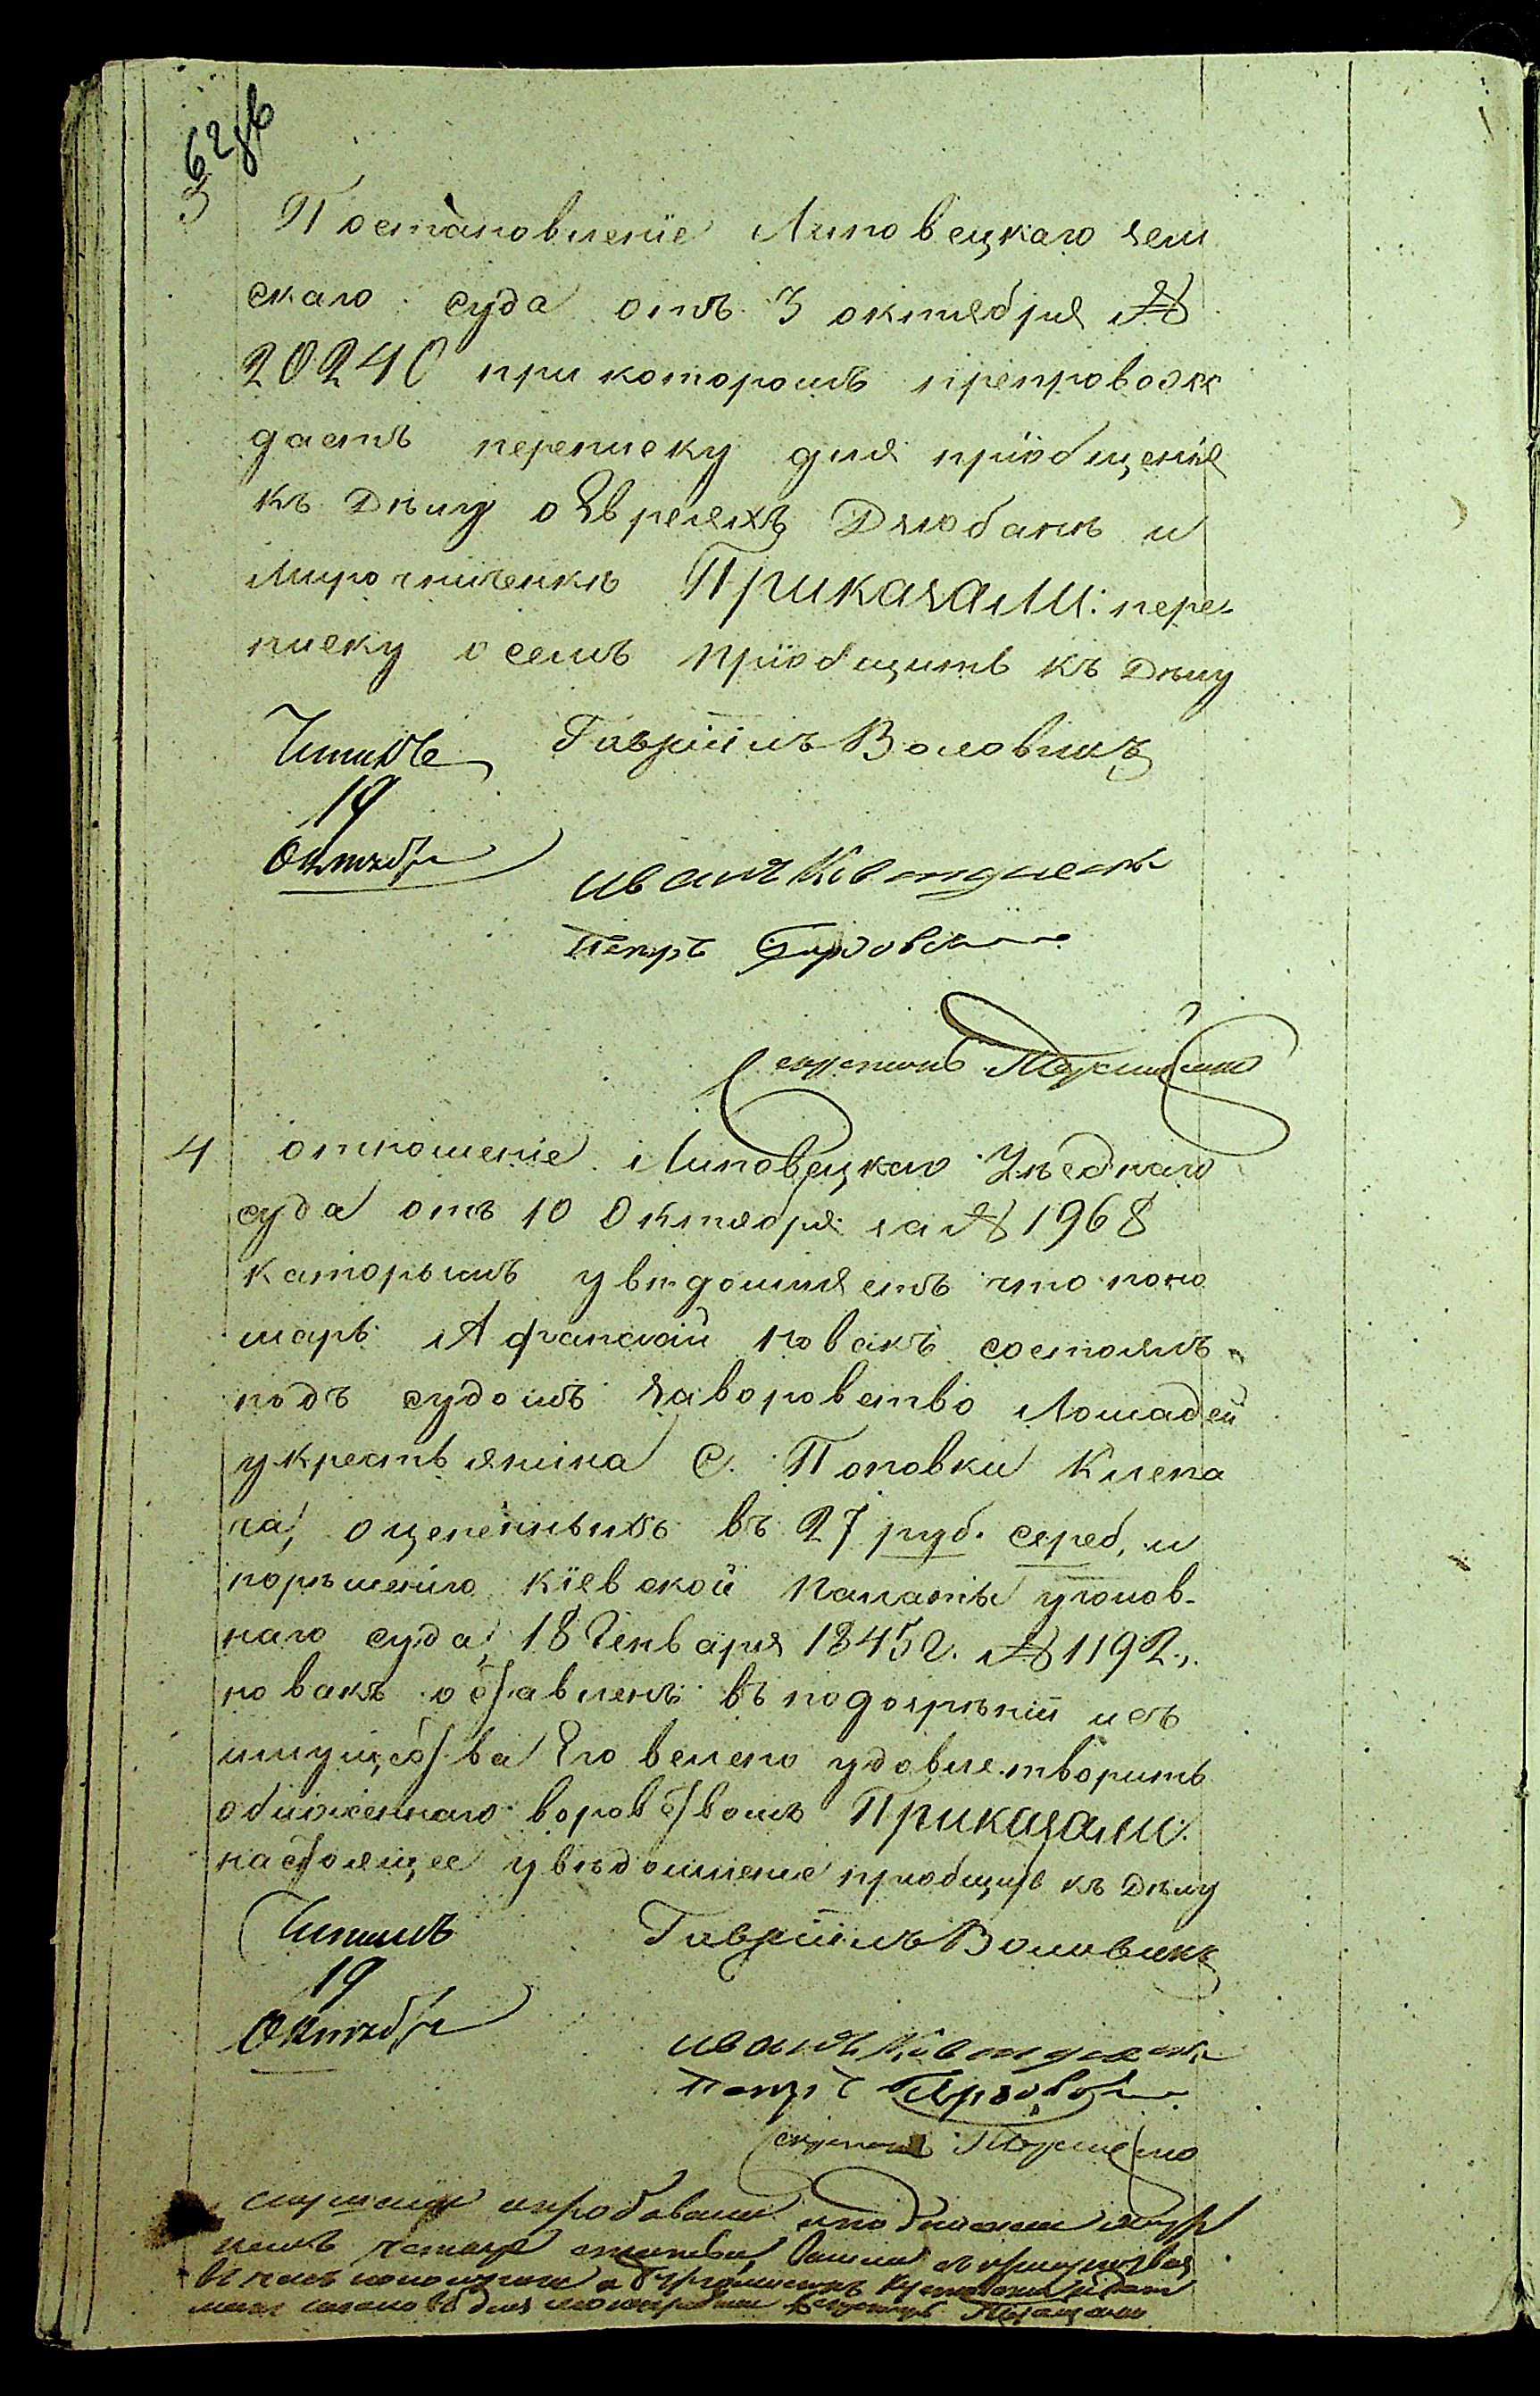 62 об
3 Постановленіе Липовецкаго зем
скаго суда отъ 3 октября №
20240 при которомъ препровож
даетъ переписку для пріобщенія
къ Дѣлу о Евреяхъ Дзюбанѣ и
Мирочниченкѣ Приказали: пере-
писку осемъ пріобщить къ Дѣлу
Читалъ Гавріилъ Воловикъ
19
Октября
Иванъ
Петръ
Секретарь
4 отношеніе Липовецкаго Уѣзднаго
суда отъ 10 Октября за № 1968
каторымъ увѣдомляетъ что поно
марь Афанасій Новакъ состоялъ
подъ судомъ заворовство Лошадей
укрестьянина С. Поповки Клепа
ча, оцененныхъ въ 27 руб. сереб, и
порѣшенію Кіевской Палаты уголов-
наго суда, 18 Генваря 1845г. № 1192,
новакъ оставленъ въ подозрѣніи исъ
имущества Его велено удовлетворить
обиженнаго воровствомъ Приказали:
настоящее увѣдомленіе приобщить къ Дѣлу
Читалъ Гавріилъ Воловикъ
19
Октября
Иванъ
Петръ
Секретарь